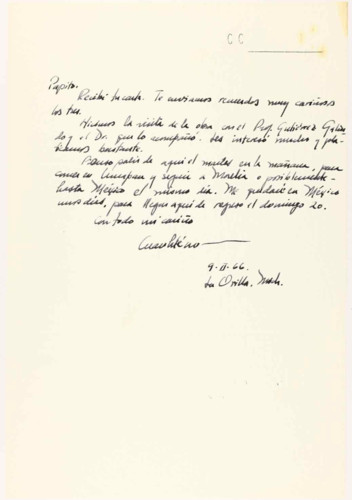 CC
Papito:
Recibí tu carta. Te enviamos recuerdos muy cariñosos
los tres.
Hicimos la visita de la obra con el Prof. Gutiérrez Galin-
do y el Dr. que lo acompañó. Les interesó mucho y
bastante.
Pienso salir de aquí el martes en la mañana, para
comer en Uruapan y seguir a Morelia o posiblemente
hasta México el mismo día. Me quedaré en México
unos días, para llegar aquí de regreso el domingo 20.
con todo mi cariño
Cuauhtémoc
9-II-66.
La Orilla, Mich.